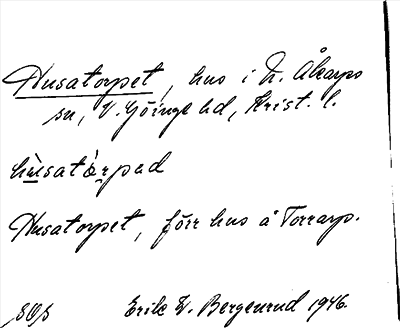 Husatorpet, hus i N. Åkarps
sn, V. Göinge hd, Krist. l.
hùsatårpad
Husatorpet, förr hus å Torrarp.
Erik W. Bergenrud 1946.